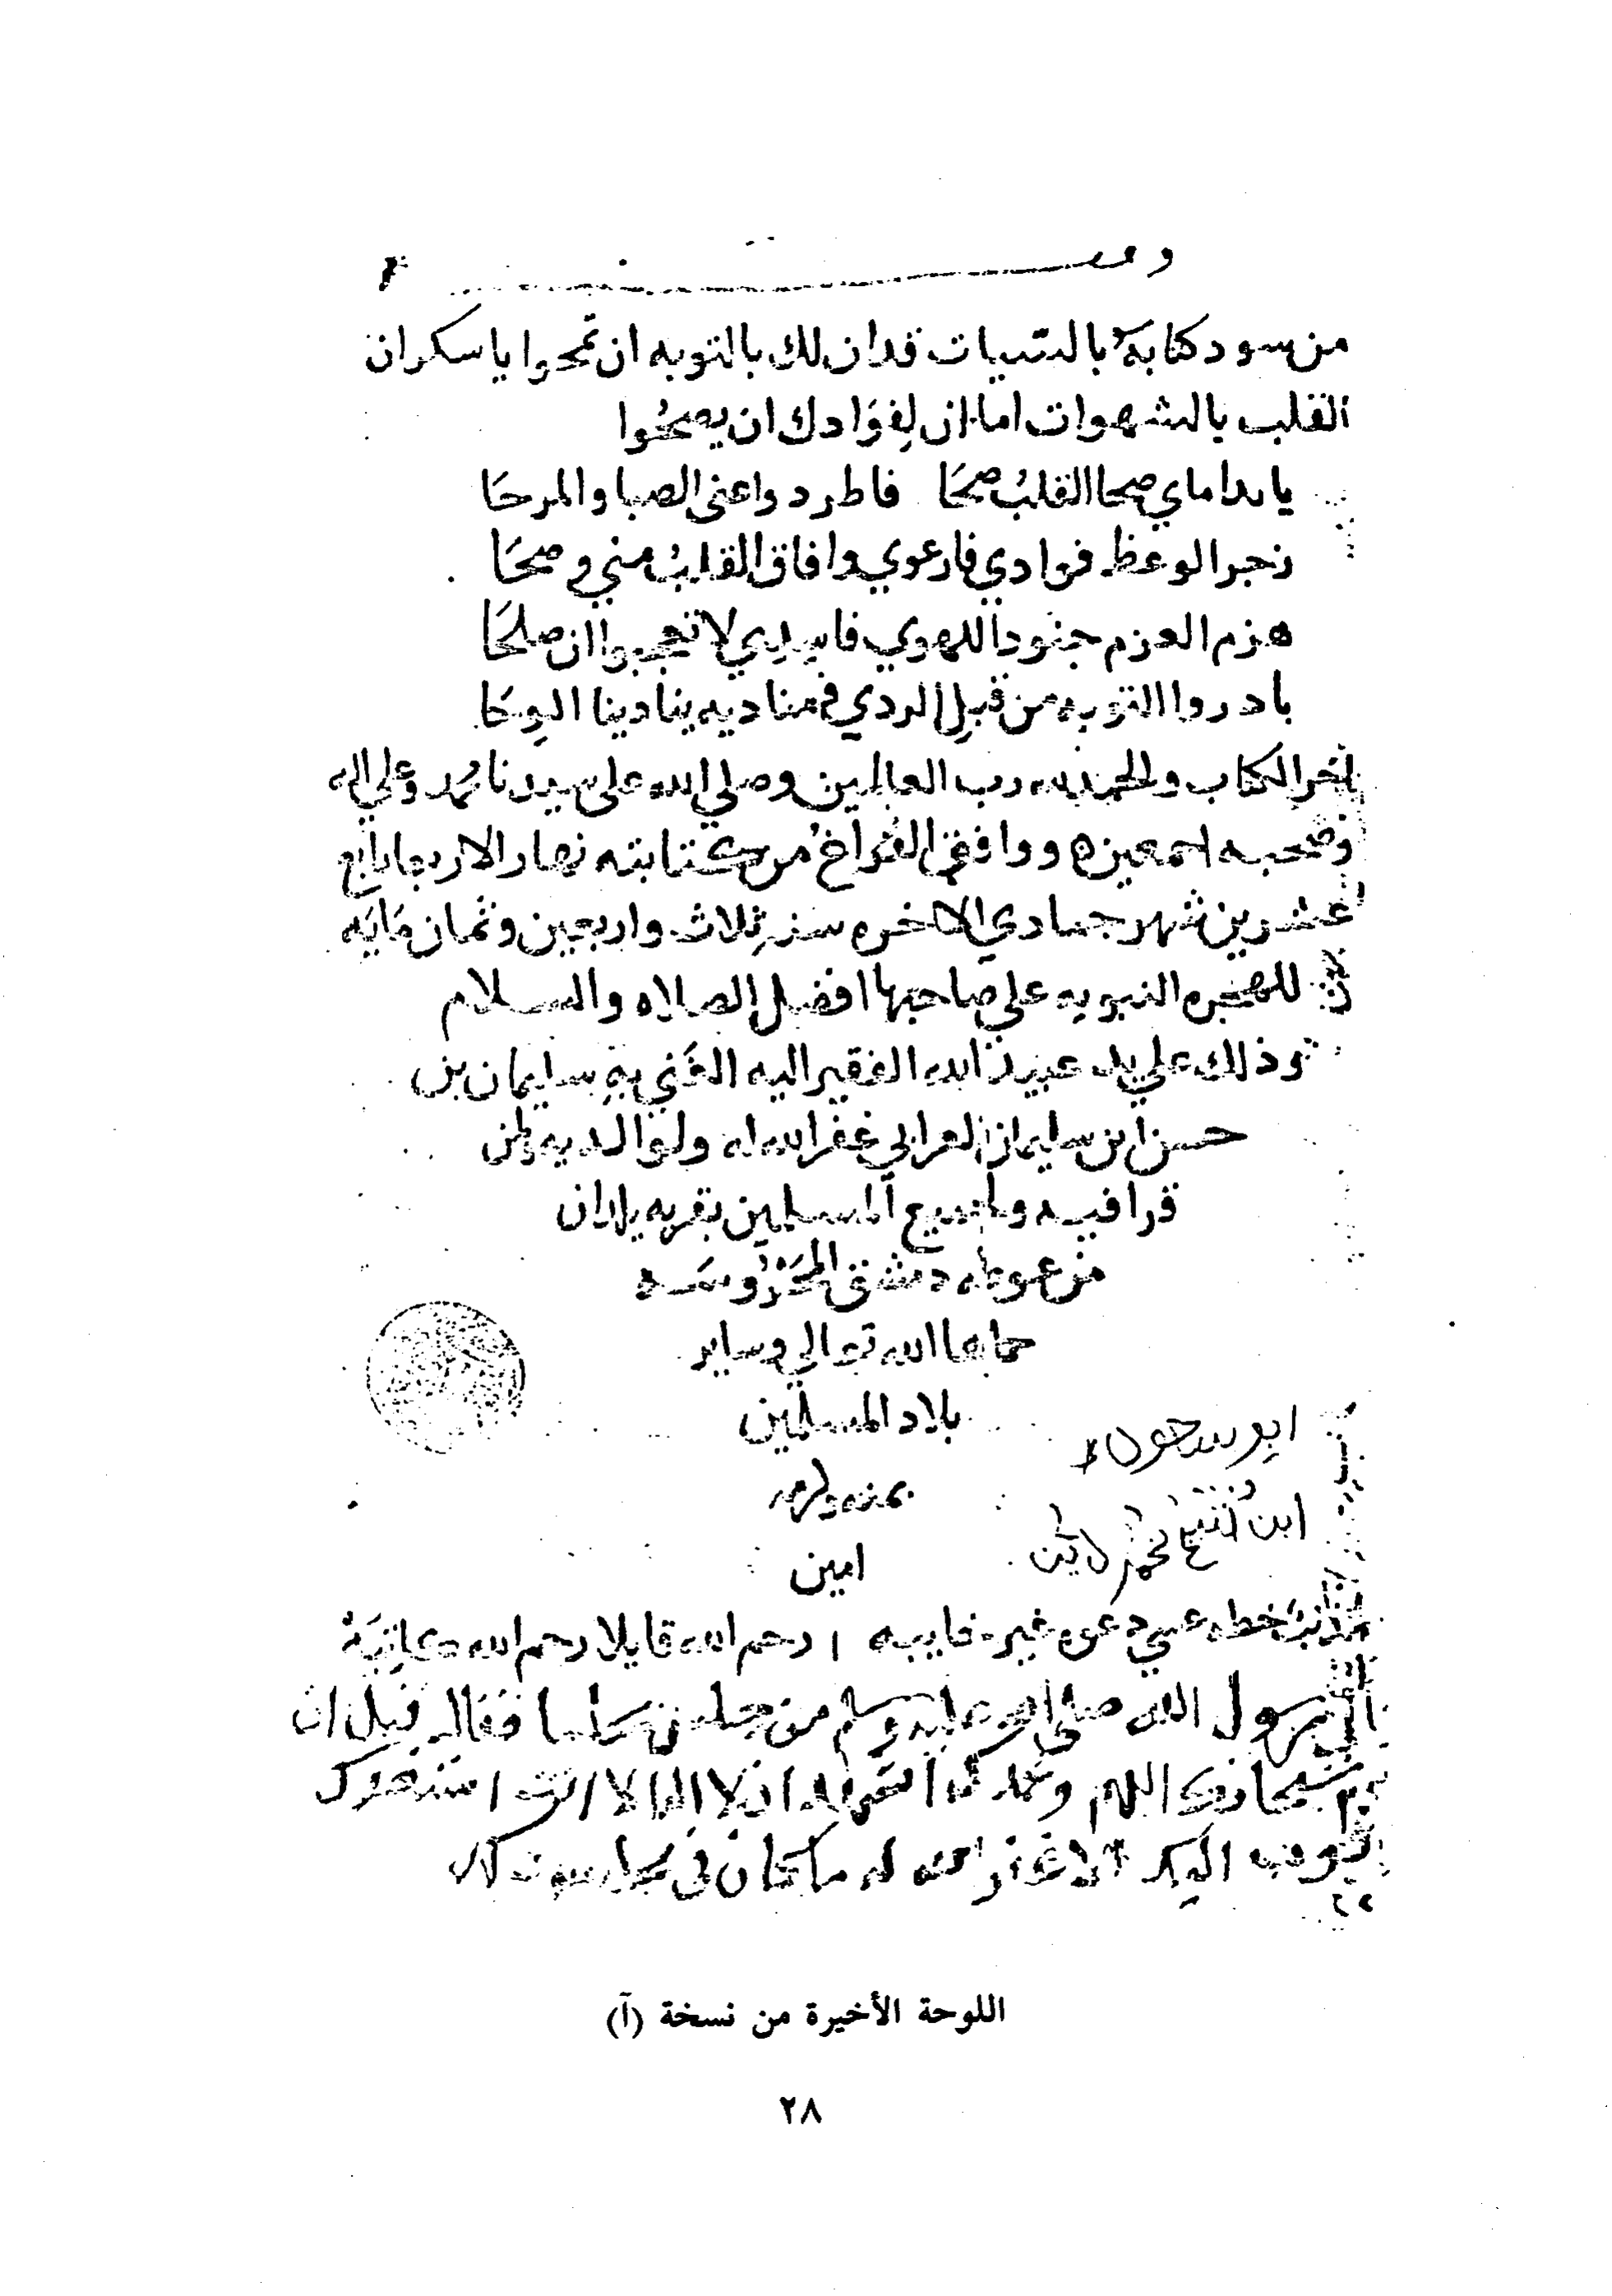 من سود كتابه بالسيات قدان لك بالتوبه ان تمحوا يا سكران
القلب بالشهوات اما ان لفوادك ان يصحوا
يا نداماي صحا القلب صحا فاطردوا عني الصبا والمرحا
زجر الوعظ فوادي فارعوي وافاق القلب مني وصحا
هزم العزم جنودا للهوي فاسدي لا تعجبوا ان صلحا
بادروا التوبه من قبل الردي فمناديه ينادينا الوحا
اخر الكتاب والحمد لله رب العالمين وصلي الله علي سيدنا محمد وعلي اله
وصحبه اجمعين ه ووافق الفراغ من كتابته نهار الاربعا رابع
عشرين شهر جمادي الاخره سنة ثلاث واربعين وثمان مايه
للهجره النبويه علي صاحبها افضل الصلاه والسلام
وذلك علي يد عبيد الله الفقير اليه الغني به سليمان بن
حسن ابن سليمان غفر الله له ولوالديه ولمن
قرا فيه ولجميع المسلمين بقريه يلدان
من غوطه دمشق المحروسه
حماها الله تعالي وساير
بلاد المسلمين
بمنه وكرمه
امين
خطه عسي دعوه غير خايبه رحم الله قايلا رحم الله كاتبه
رسول الله صلى الله عليه وسلم من جلس مجلسا فقال قبل ان
سبحانك اللهم وبحمدك اشهد ان لا اله الا انت استغفرك
واتوب اليك الا غفر الله له ما كان في مجلسه
اللوحة الأخيرة من نسخة (آ)
٢٨